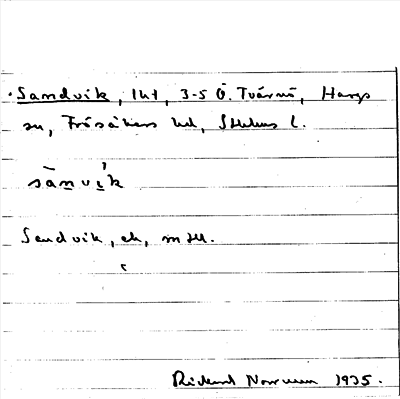 Sandvik, lht, 3-5 Ö. Tvärnö, Hargs
sn, Frösåkers hd, Sthlms l.
sānvi̱k
Sandvik, ek, mtl.
Rickard Norrman 1935.